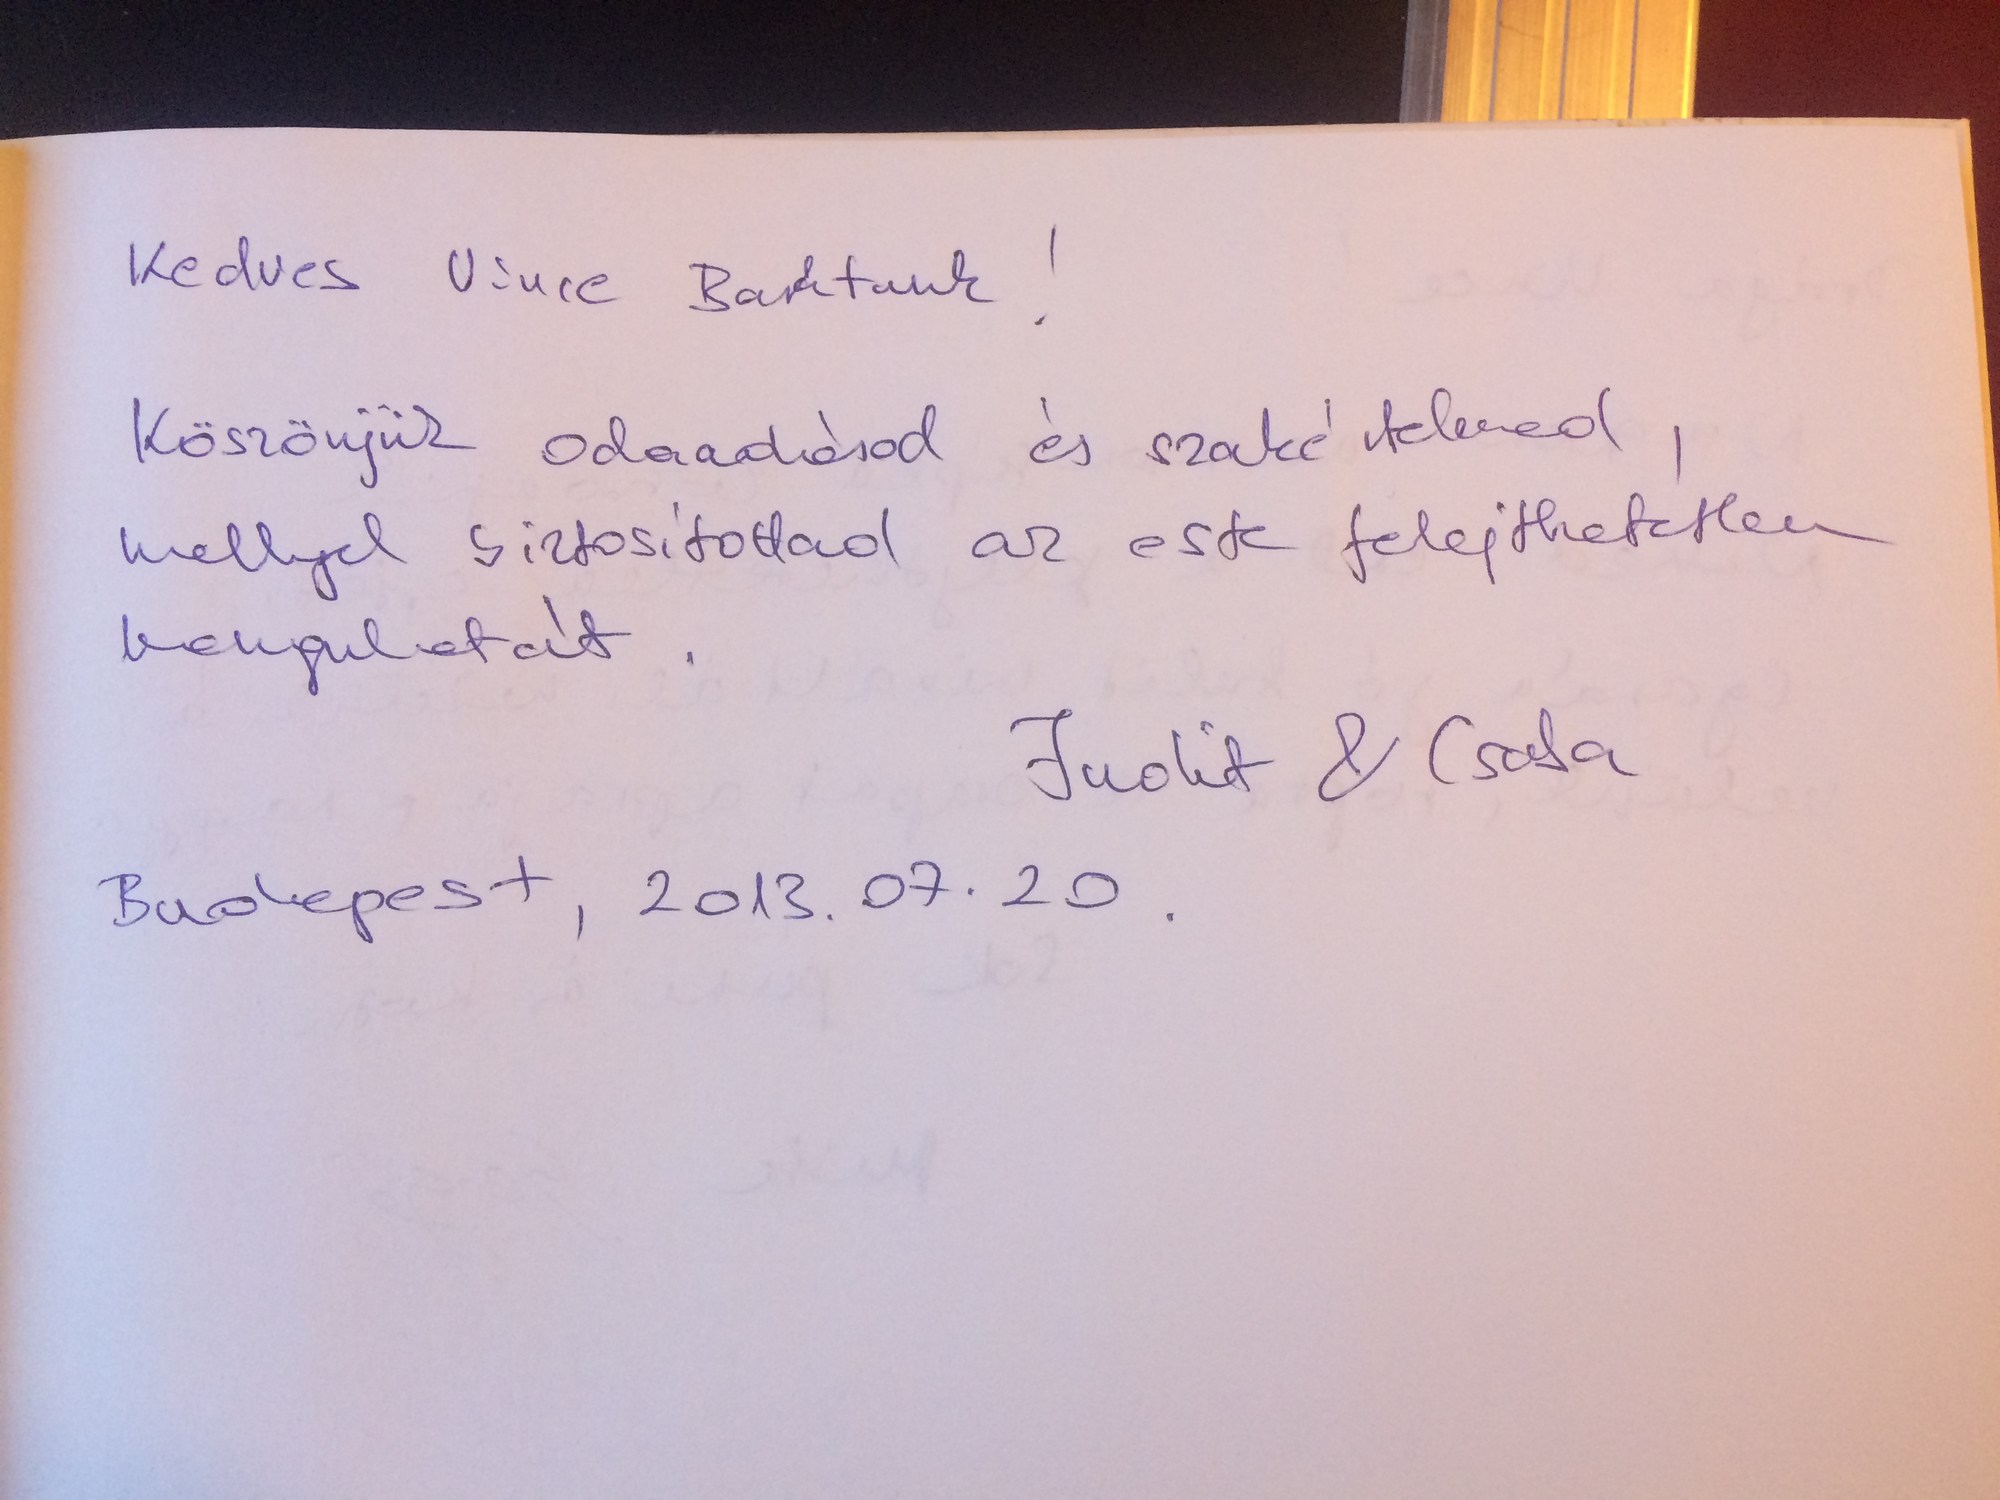 Kedves Vince Barátunk!
Köszönjük odaadásod és szakértelmed,
mellyel biztosítottad az este felejthetetlen
hangulatát.
Judit & Csaba
Budapest, 2013.07.20.